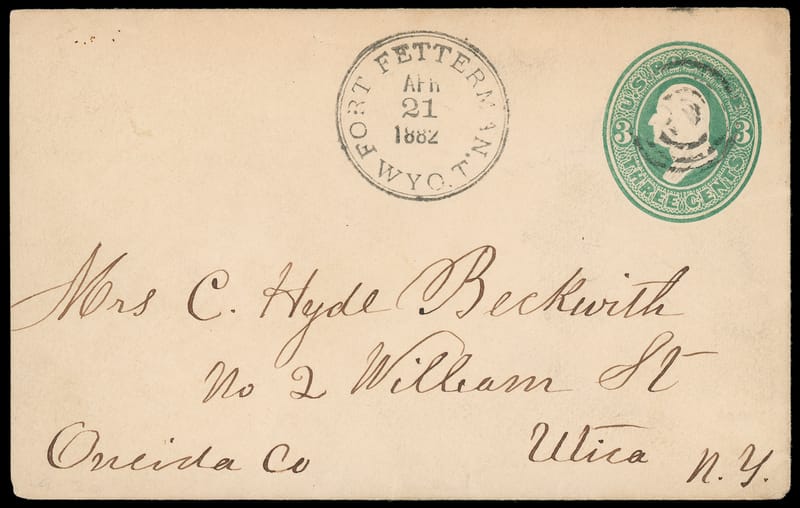 FORT FETTERMAN
APR
21
1882
WYO. T.
U.S. POSTAGE
3 3
THREE CENTS
Mrs C. Hyde Beckwith
No 2 William St
Oneida Co Utica N.Y.